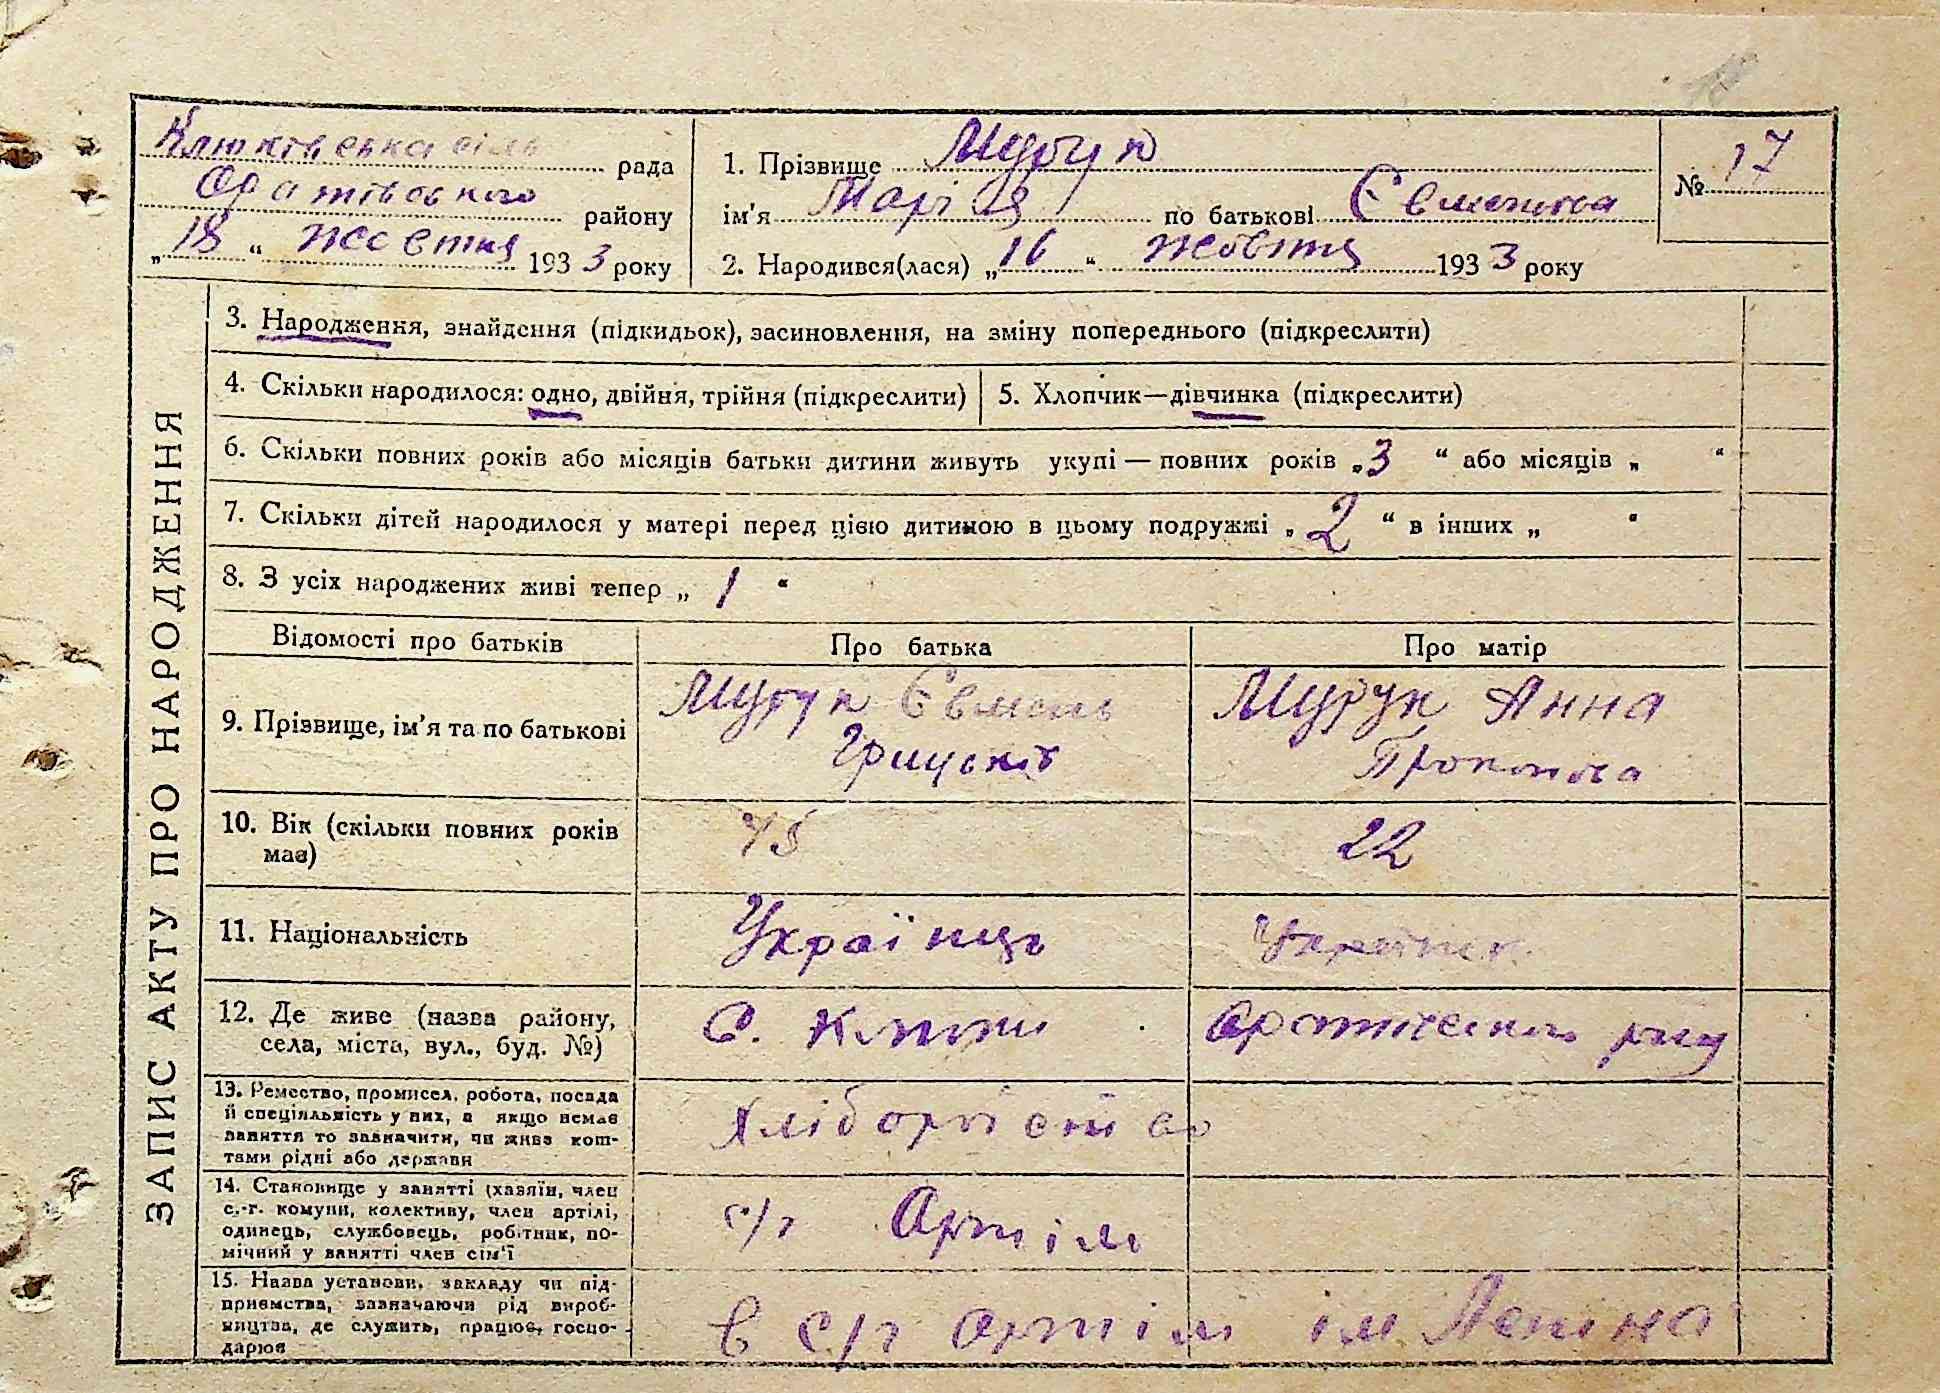 Клюківська сіль рада
Оратівського району
„18“ жовтня 1933 року
1. Прізвище Мурук
ім'я Марія по батькові Євменова
2. Народився(лася) „16“ жовтня 1933 року
№ 17
ЗАПИС АКТУ ПРО НАРОДЖЕННЯ
3. Народження, знайдення (підкидьок), засиновлення, на зміну попереднього (підкреслити)
4. Скільки народилося: одно, двійня, трійня (підкреслити)
5. Хлопчик—дівчинка (підкреслити)
6. Скільки повних років або місяців батьки дитини живуть укупі — повних років „3“ або місяців „ “
7. Скільки дітей народилося у матері перед цією дитиною в цьому подружжі „2“ в інших „ “
8. З усіх народжених живі тепер „1“
Відомості про батьків Про батька Про матір
9. Прізвище, ім'я та по батькові
Мурук Євмень
Грицьків
Мурук Анна
Прокопова
10. Вік (скільки повних років
має)
45
22
11. Національність
Українць
Українка
12. Де живе (назва району,
села, міста, вул., буд. №)
С. Клюки
Оратівського р-ну
13. Ремество, промисел, робота, посада
й спеціяльність у них, а якщо немає
заняття то зазначити, чи живе кош-
тами рідні або держави
Хліборобство
14. Становище у занятті (хазяїн, член
с.-г. комуни, колективу, член артілі,
одинець, службовець, робітник, по-
мічний у занятті член сім'ї
с/г Артіль
15. Назва установи, закладу чи під-
приємства, зазначаючи рід вироб-
ництва, де служить, працює, госпо-
дарює
в с/г артіл ім Леніна